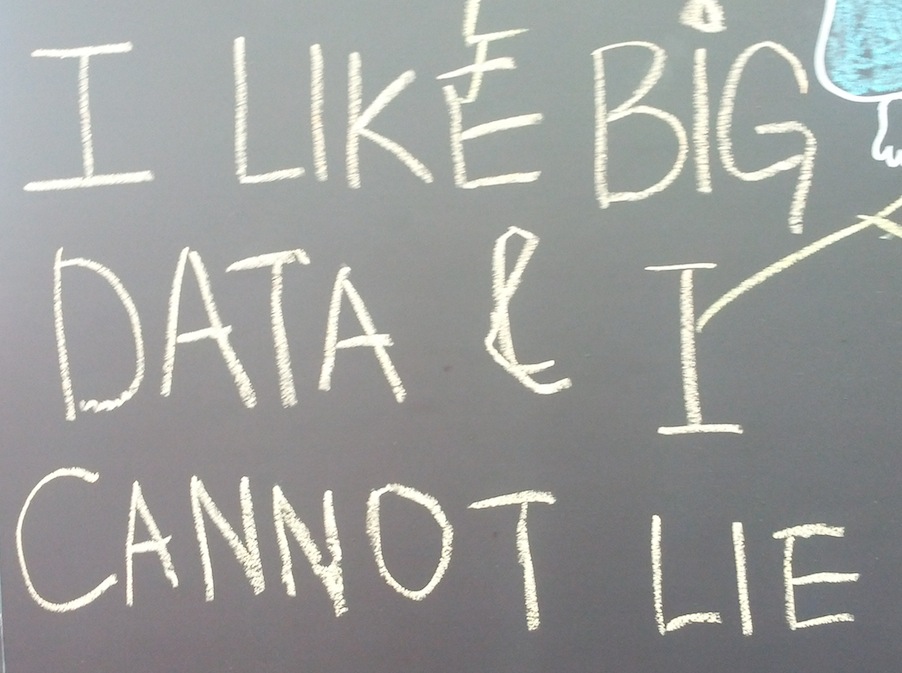 I LIKE BIG
DATA & I
CANNOT LIE